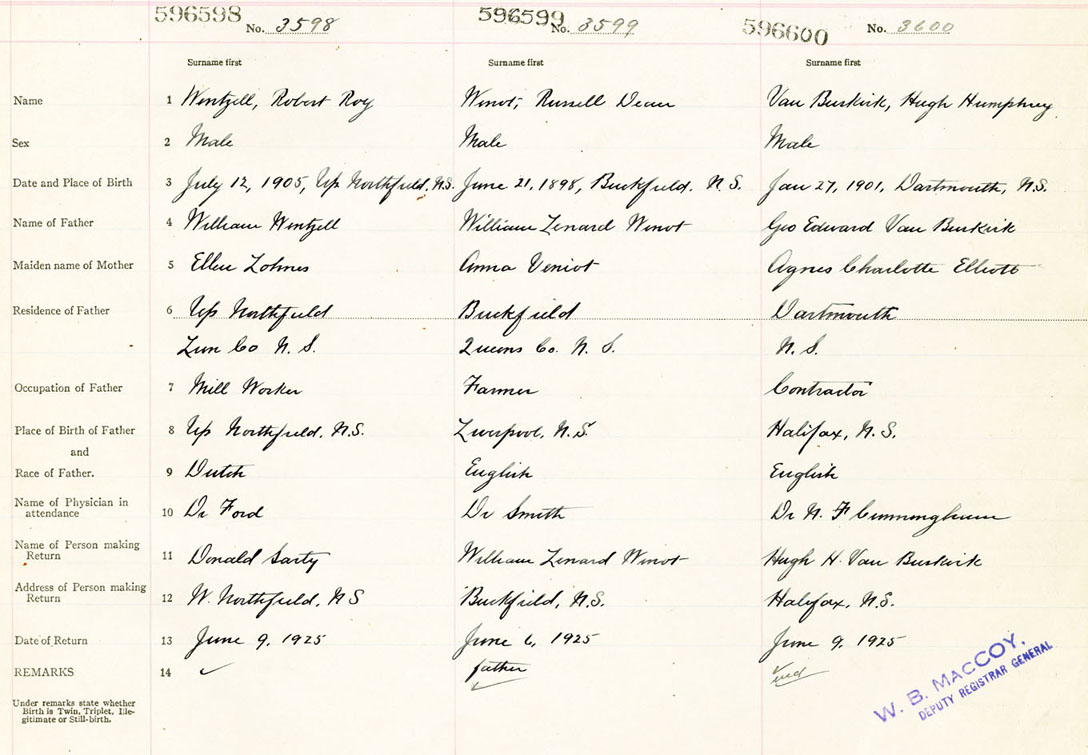 596598 No. 3598 596599 No. 3599 596600 No. 3600
Surname first Surname first Surname first
Name 1 Wentzell, Robert Roy Winot, Russell Dean Van Buskirk, Hugh Humphrey
Sex 2 Male Male Male
Date and Place of Birth 3 July 12, 1905, Up Northfield, N.S. June 21, 1898, Buckfield, N S. Jan 27, 1901, Dartmouth, N.S.
Name of Father 4 William Wentzell William Lenard Winot Geo Edward Van Buskirk
Maiden name of Mother 5 Ellen Lohnes Anna Veniot Agnes Charlotte Elliott
Residence of Father 6 Up Northfield Buckfield Dartmouth
Lun Co N. S. Queens Co. N. S. N. S.
Occupation of Father 7 Mill Worker Farmer Contractor
Place of Birth of Father 8 Up Northfield, N.S. Liverpool, N.S. Halifax, N. S.
and
Race of Father. 9 Dutch English English
Name of Physician in
attendance 10 Dr Ford Dr Smith Dr N. F Cunningham
Name of Person making
Return 11 Donald Sarty William Lenard Winot Hugh H. Van Buskirk
Address of Person making
Return 12 W. Northfield, N S Buckfield, N.S. Halifax, N.S.
Date of Return 13 June 9, 1925 June 6, 1925 June 9, 1925
REMARKS 14 father
W. B. MACCOY,
DEPUTY REGISTRAR GENERAL
Under remarks state whether
Birth is Twin, Triplet, Ille-
gitimate or Still-birth.